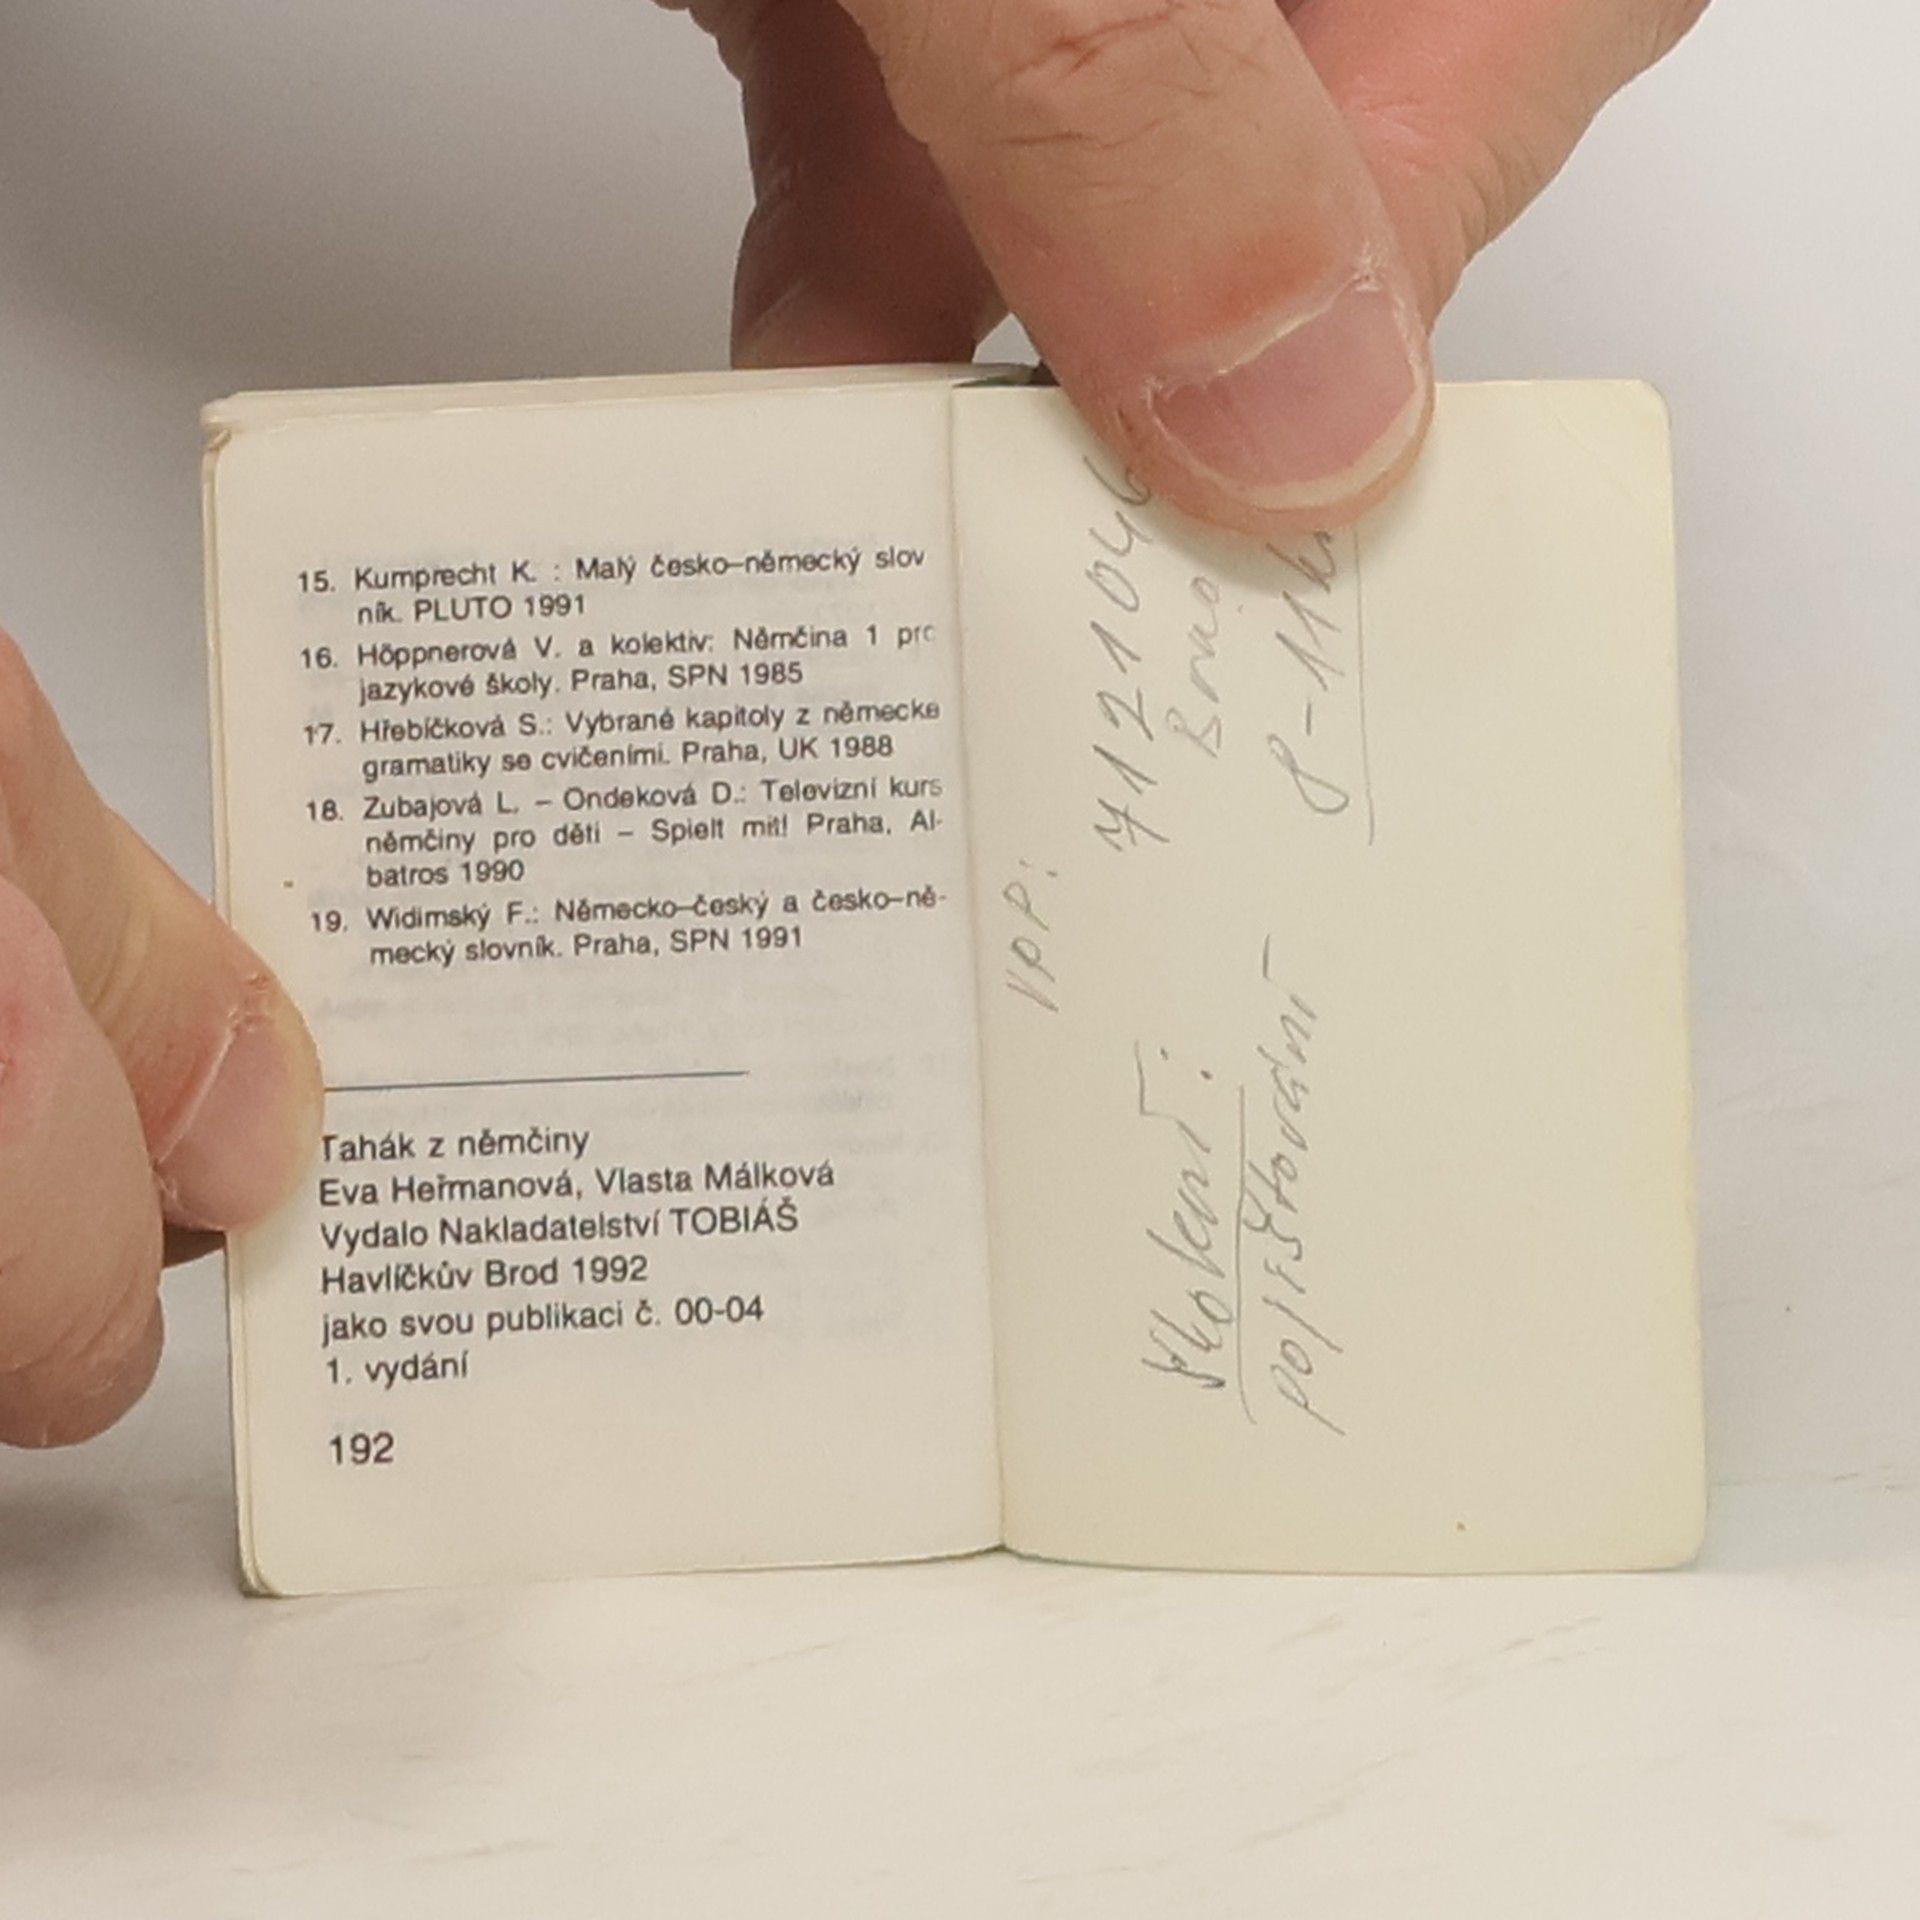 15. Kumprecht K. : Malý česko–německý slov
ník. PLUTO 1991
16. Höppnerová V. a kolektiv: Němčina 1 pro
jazykové školy. Praha, SPN 1985
17. Hřebíčková S.: Vybrané kapitoly z německé
gramatiky se cvičeními. Praha, UK 1988
18. Zubajová L. – Ondeková D.: Televizní kurs
němčiny pro děti – Spielt mit! Praha, Al-
batros 1990
19. Widimský F.: Německo–český a česko–ně-
mecký slovník. Praha, SPN 1991
Tahák z němčiny
Eva Heřmanová, Vlasta Málková
Vydalo Nakladatelství TOBIÁŠ
Havlíčkův Brod 1992
jako svou publikaci č. 00-04
1. vydání
192
VPP:
412 1046
Brno
školení:
8-11h
pojišťování